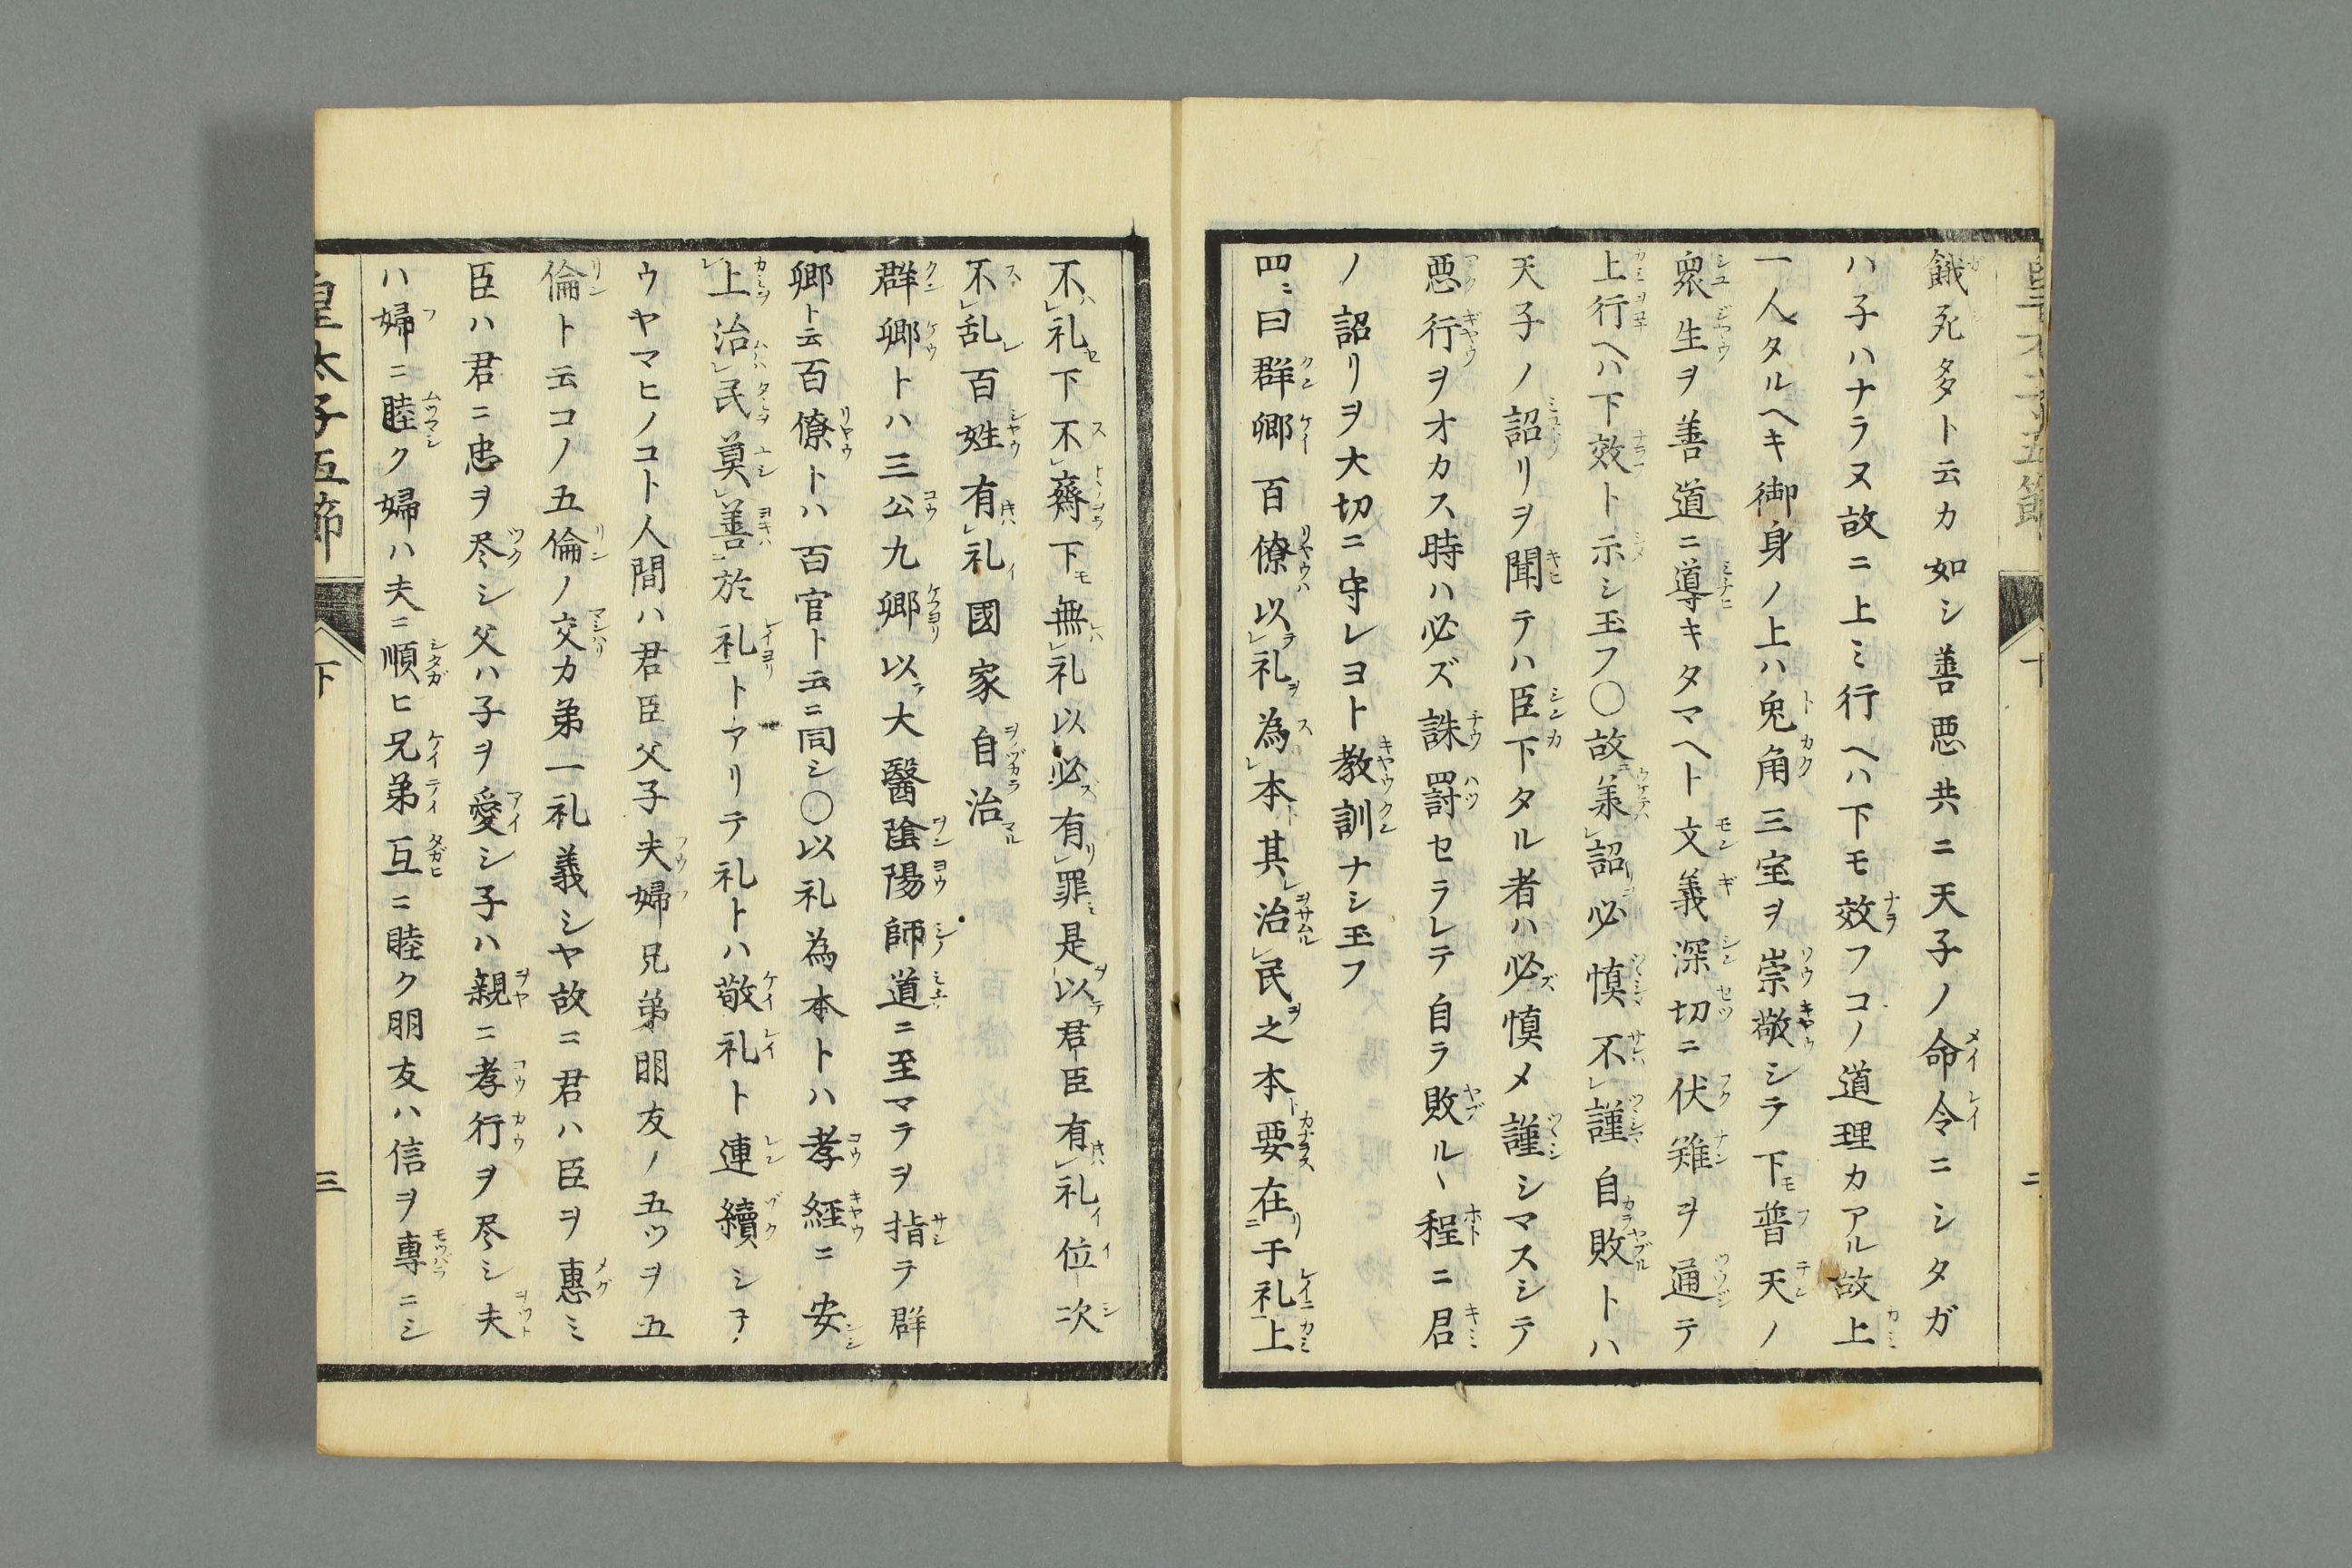 餓死多ト云カ如シ善悪共ニ天子ノ命令ニシタガ
ハ子ハナラヌ故ニ上ミ行ヘハ下モ效フコノ道理カアル故上
一人タルヘキ御身ノ上ハ兎角三宝ヲ崇敬シラ下普天ノ
衆生ヲ善道ニ導キタマヘト文義深切ニ伏難ヲ通テ
上行ヘハ下效ト示シ玉フ〇故羕詔必慎不謹自敗トハ
天子ノ詔リヲ聞テハ臣下タル者ハ必慎メ謹シマスシテ
悪行ヲオカス時ハ必ズ誅罰セラレテ自ラ敗ルヽ程ニ君
ノ詔リヲ大切ニ守レヨト教訓ナシ玉フ
四ニ曰群卿百僚以礼為本其治民之本要在于礼上
不礼下不齊下無礼以必有罪是以君臣有礼位次
不乱百姓有礼國家自治
群卿トハ三公九卿以大醫陰陽師道ニ至マラヲ指テ群
卿ト云百僚トハ百官ト云ニ同シ〇以礼為本トハ孝経ニ安
上治民莫善於礼トアリテ礼トハ敬礼ト連續シテ
ウヤマヒノコト人間ハ君臣父子夫婦兄弟朋友ノ五ツヲ五
倫ト云コノ五倫ノ交カ弟一礼義シヤ故ニ君ハ臣ヲ惠ミ
臣ハ君ニ忠ヲ尽シ父ハ子ヲ愛シ子ハ親ニ孝行ヲ尽シ夫
ハ婦ニ睦ク婦ハ夫ニ順ヒ兄弟互ニ睦ク朋友ハ信ヲ專ニシ
皇太子五節 下 三